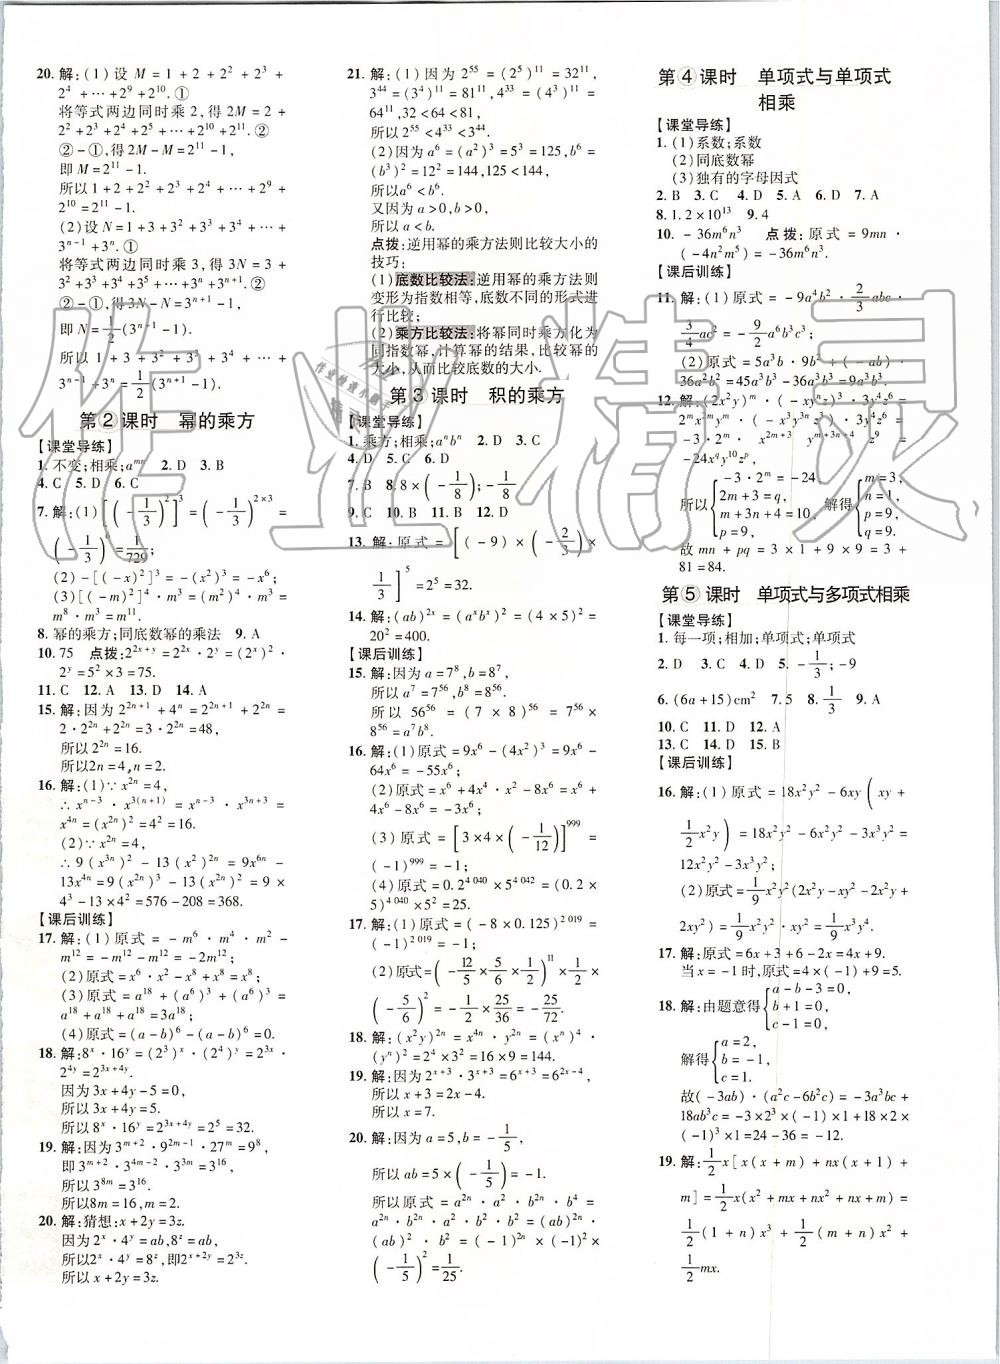 20. 解:(1)设 M=1+2+2²+2³+
2⁴+…+2⁹+2¹⁰.①
将等式两边同时乘2,得2M=2+
2²+2³+2⁴+2⁵+…+2¹⁰+2¹¹.②
②-①,得2M-M=2¹¹-1,
即M=2¹¹-1.
所以1+2+2²+2³+2⁴+…+2⁹+
2¹⁰=2¹¹-1.
(2)设N=1+3+3²+3³+3⁴+…+
3ⁿ⁻¹+3ⁿ.①
将等式两边同时乘3,得3N=3+
3²+3³+3⁴+3⁵+…+3ⁿ+3ⁿ⁺¹.②
②-①,得3N-N=3ⁿ⁺¹-1,
即N=1/2(3ⁿ⁺¹-1).
所以1+3+3²+3³+3⁴+…+
3ⁿ⁻¹+3ⁿ=1/2(3ⁿ⁺¹-1)
第②课时 幂的乘方
【课堂导练】
1. 不变;相乘;aᵐⁿ 2. D 3. B
4. C 5. D 6. C
7. 解:(1)[(-1/3)²]³=(-1/3)²ˣ³=
(-1/3)⁶=1/729;
(2)-[(-x)²]³=-(x²)³=-x⁶;
(3)[(-m)²]⁴·m³=(m²)⁴·m³=
m⁸·m³=m¹¹.
8. 幂的乘方;同底数幂的乘法 9. A
10. 75 点拨:2²ˣ⁺ʸ=2²ˣ·2ʸ=(2ˣ)²·
2ʸ=5²×3=75.
11. C 12. A 13. D 14. A
15. 解:因为2²ⁿ⁺¹+4ⁿ=2²ⁿ⁺¹+2²ⁿ=
2·2²ⁿ+2²ⁿ=3·2²ⁿ=48,
所以2²ⁿ=16.
所以2n=4,n=2.
16. 解:(1)∵x²ⁿ=4,
∴xⁿ⁻³·x³⁽ⁿ⁺¹⁾=xⁿ⁻³·x³ⁿ⁺³=
x⁴ⁿ=(x²ⁿ)²=4²=16.
(2)∵x²ⁿ=4,
∴9(x³ⁿ)²-13(x²)²ⁿ=9x⁶ⁿ-
13x⁴ⁿ=9(x²ⁿ)³-13(x²ⁿ)²=9×
4³-13×4²=576-208=368.
【课后训练】
17. 解:(1)原式=-m⁶·m⁴·m²-
m¹²=-m¹²-m¹²=-2m¹²;
(2)原式=x⁶·x²-x⁸+x⁸=x⁸;
(3)原式=a¹⁸+(a⁶)³+(a⁶)³=
a¹⁸+a¹⁸+a¹⁸=3a¹⁸;
(4)原式=(a-b)⁶-(a-b)⁶=0.
18. 解:8ˣ·16ʸ=(2³)ˣ·(2⁴)ʸ=2³ˣ·
2⁴ʸ=2³ˣ⁺⁴ʸ.
因为3x+4y-5=0,
所以3x+4y=5.
所以8ˣ·16ʸ=2³ˣ⁺⁴ʸ=2⁵=32.
19. 解:因为3ᵐ⁺²·9²ᵐ⁻¹·27ᵐ=9⁸,
即3ᵐ⁺²·3⁴ᵐ⁻²·3³ᵐ=3¹⁶,
所以3⁸ᵐ=3¹⁶.
所以8m=16,m=2.
20. 解:猜想:x+2y=3z.
因为2ˣ=a,4ʸ=b,8ᶻ=ab,
所以2ˣ·4ʸ=8ᶻ,即2ˣ⁺²ʸ=2³ᶻ.
所以x+2y=3z.
21. 解:(1)因为2⁵⁵=(2⁵)¹¹=32¹¹,
3⁴⁴=(3⁴)¹¹=81¹¹,4³³=(4³)¹¹=
64¹¹,32<64<81,
所以2⁵⁵<4³³<3⁴⁴.
(2)因为a⁶=(a²)³=5³=125,b⁶=
(b³)²=12²=144,125<144,
所以a⁶<b⁶.
又因为a>0,b>0,
所以a<b.
点拨:逆用幂的乘方法则比较大小的
技巧:
(1)底数比较法:逆用幂的乘方法则
变形为指数相等,底数不同的形式进
行比较;
(2)乘方比较法:将幂同时乘方化为
同指数幂,计算幂的结果,比较幂的
大小,从而比较底数的大小.
第③课时 积的乘方
【课堂导练】
1. 乘方;相乘;aⁿbⁿ 2. D 3. C
4. D 5. C 6. D
7. B 8. 8×(-1/8);-1/8
9. C 10. B 11. B 12. D
13. 解:原式=[(-9)×(-2/3)×
1/3]⁵=2⁵=32.
14. 解:(ab)²ˣ=(aˣbˣ)²=(4×5)²=
20²=400.
【课后训练】
15. 解:因为a=7⁸,b=8⁷,
所以a⁷=7⁵⁶,b⁸=8⁵⁶.
所以56⁵⁶=(7×8)⁵⁶=7⁵⁶×
8⁵⁶=a⁷b⁸.
16. 解:(1)原式=9x⁶-(4x²)³=9x⁶-
64x⁶=-55x⁶;
(2)原式=x⁶+4x⁴·x²-8x⁶=x⁶+
4x⁶-8x⁶=-3x⁶;
(3)原式=[3×4×(-1/12)]⁹⁹⁹=
(-1)⁹⁹⁹=-1;
(4)原式=0.2⁴⁰⁴⁰×5⁴⁰⁴²=(0.2×
5)⁴⁰⁴⁰×5²=25.
17. 解:(1)原式=(-8×0.125)²⁰¹⁹=
(-1)²⁰¹⁹=-1;
(2)原式=(-12/5×5/6×1/2)¹¹×1/2×
(-5/6)²=-1/2×25/36=-25/72.
18. 解:(x²y)²ⁿ=x⁴ⁿ·y²ⁿ=(xⁿ)⁴·
(yⁿ)²=2⁴×3²=16×9=144.
19. 解:因为2ˣ⁺³·3ˣ⁺³=6ˣ⁺³=6²ˣ⁻⁴,
所以x+3=2x-4.
所以x=7.
20. 解:因为a=5,b=-1/5,
所以ab=5×(-1/5)=-1.
所以原式=a²ⁿ·a²·b²ⁿ·b⁴=
a²ⁿ·b²ⁿ·a²·b²·b²=(ab)²ⁿ·
(ab)²·b²=(-1)²ⁿ×(-1)²×
(-1/5)²=1/25.
第④课时 单项式与单项式
相乘
【课堂导练】
1. (1)系数;系数
(2)同底数幂
(3)独有的字母因式
2. B 3. C 4. D 5. A 6. D 7. A
8. 1.2×10¹³ 9. 4
10. -36m⁶n³ 点拨:原式=9mn·
(-4n²m⁵)=-36m⁶n³.
【课后训练】
11. 解:(1)原式=-9a⁴b²·2/3abc·
3/4ac²=-9/2a⁶b³c³;
(2)原式=5a³b·9b²+(-ab)·
36a²b²=45a³b³-36a³b³=9a³b³.
12. 解:(2x²y)ᵐ·(-xyⁿz)³·3y⁴z⁶=
2ᵐx²ᵐyᵐ·(-x³y³ⁿz³)·3y⁴z⁶=
-3·2ᵐ·x²ᵐ⁺³yᵐ⁺³ⁿ⁺⁴z⁹=
-24x^q y¹⁰zᵖ,
所以{-3·2ᵐ=-24, 2m+3=q, m+3n+4=10, p=9, 解得{m=3, n=1, p=9, q=9.
故mn+pq=3×1+9×9=3+
81=84.
第⑤课时 单项式与多项式相乘
【课堂导练】
1. 每一项;相加;单项式;单项式
2. D 3. C 4. D 5. -1/3;-9
6. (6a+15)cm² 7. 5 8. 1/3 9. A
10. C 11. D 12. A
13. C 14. D 15. B
【课后训练】
16. 解:(1)原式=18x²y²-6xy(xy+
1/2x²y)=18x²y²-6x²y²-3x³y²=
12x²y²-3x³y²;
(2)原式=1/9x²y²(2x²y-2x²y+
2xy²)=1/9x²y²·2xy²=2/9x³y⁴.
17. 解:原式=6x+3+6-2x=4x+9.
当x=-1时,原式=4×(-1)+9=5.
18. 解:由题意得{a-b-3=0, b+1=0, c-1=0,
解得{a=2, b=-1, c=1.
故(-3ab)·(a²c-6b²c)=-3a³bc+
18ab³c=-3×2³×(-1)×1+18×2×
(-1)³×1=24-36=-12.
19. 解:1/2x[x(x+m)+nx(x+1)+
m]=1/2x(x²+mx+nx²+nx+m)=
1/2(1+n)x³+1/2(m+n)x²+
1/2mx.
作业精灵